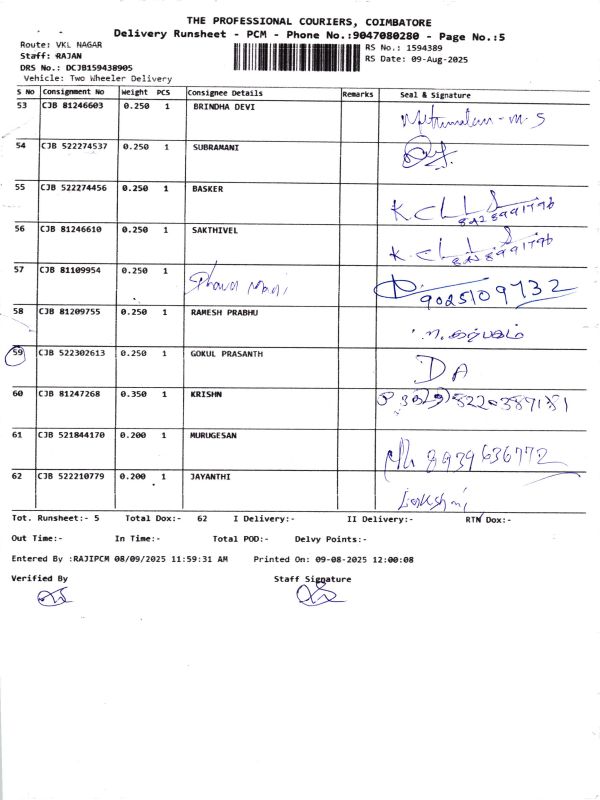 THE PROFESSIONAL COURIERS, COIMBATORE
Delivery Runsheet - PCM - Phone No.:9047080280 - Page No.:5
Route: VKL NAGAR
RS No.: 1594389
Staff: RAJAN
RS Date: 09-Aug-2025
DRS No.: DCJB159438905
Vehicle: Two Wheeler Delivery
S No Consignment No Weight PCS Consignee Details Remarks Seal & Signature
53 CJB 81246603 0.250 1 BRINDHA DEVI
54 CJB 522274537 0.250 1 SUBRAMANI
55 CJB 522274456 0.250 1 BASKER
56 CJB 81246610 0.250 1 SAKTHIVEL
57 CJB 81109954 0.250 1 9025109732
58 CJB 81209755 0.250 1 RAMESH PRABHU
59 CJB 522302613 0.250 1 GOKUL PRASANTH DA
60 CJB 81247268 0.350 1 KRISHN
61 CJB 521844170 0.200 1 MURUGESAN 8939636772
62 CJB 522210779 0.200 1 JAYANTHI
Tot. Runsheet:- 5 Total Dox:- 62 I Delivery:- II Delivery:- RTN Dox:-
Out Time:- In Time:- Total POD:- Delvy Points:-
Entered By :RAJIPCM 08/09/2025 11:59:31 AM Printed On: 09-08-2025 12:00:08
Verified By Staff Signature